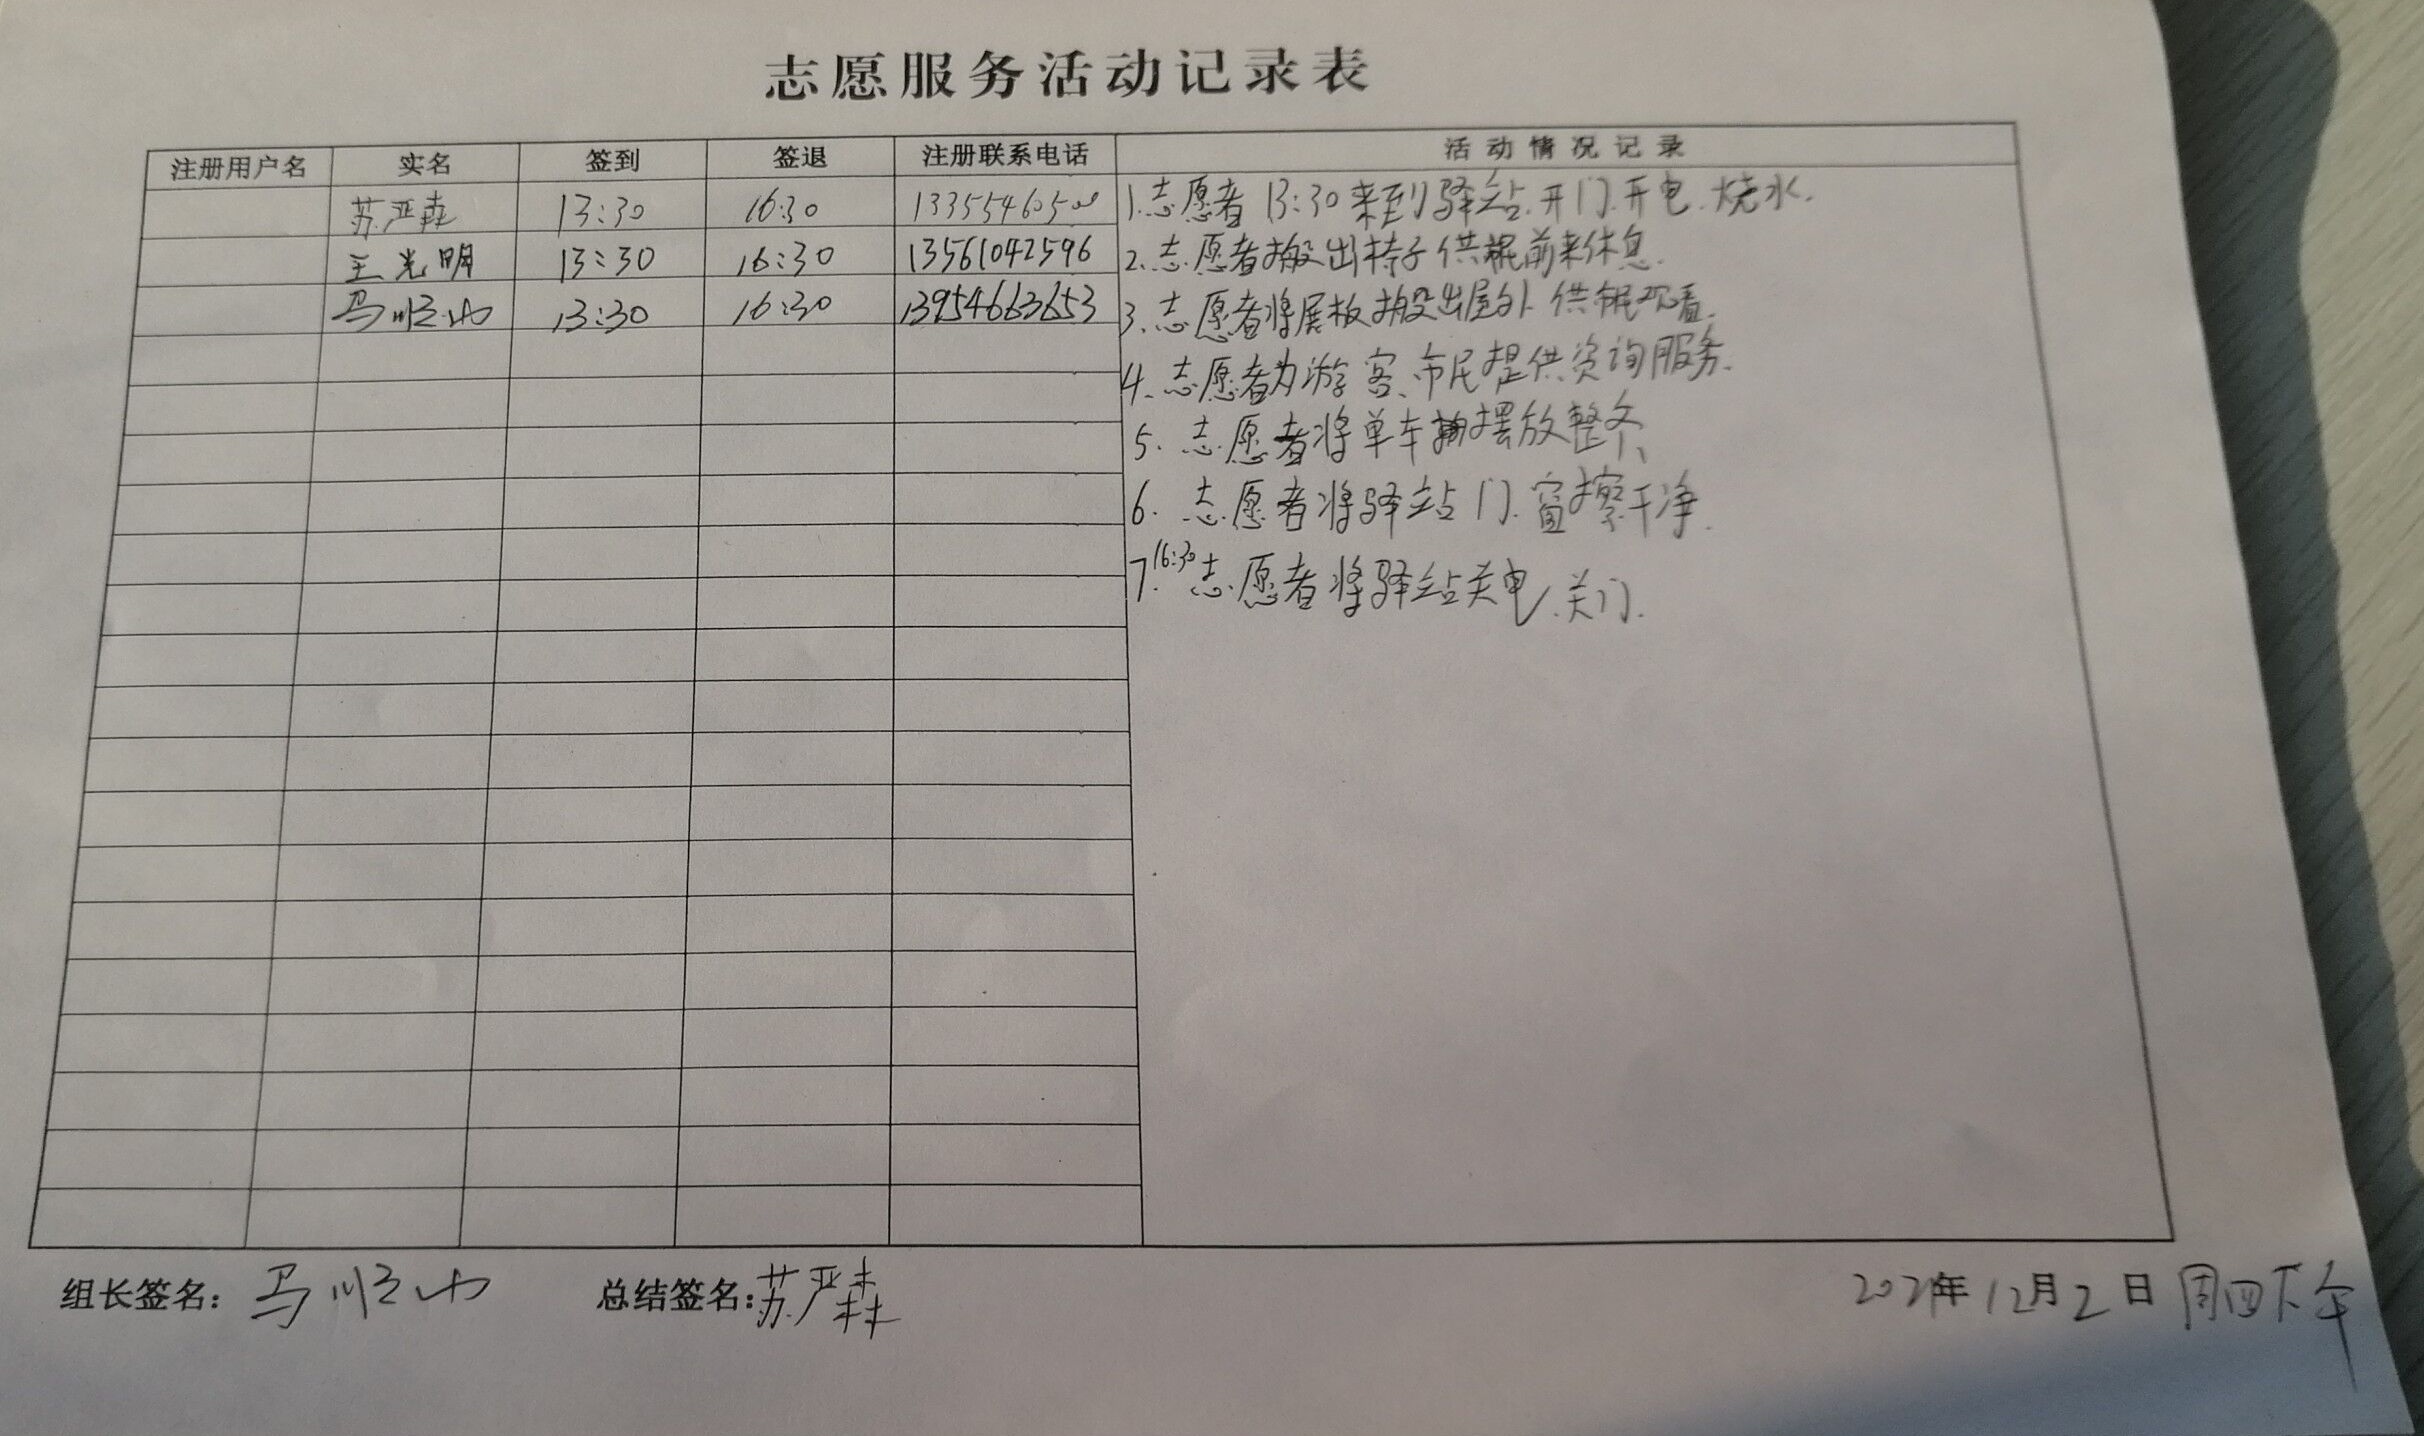 志愿服务活动记录表
注册用户名 实名 签到 签退 注册联系电话 活动情况记录
苏严森 13:30 16:30 13355460500
王光明 13:30 16:30 13561042596
马顺山 13:30 16:30 13954663653
1.志愿者13:30来到驿站.开门.开电.烧水.
2.志愿者搬出椅子供市民前来休息.
3.志愿者将展板搬出屋外供市民观看.
4.志愿者为游客、市民提供咨询服务.
5.志愿者将单车摆放整齐
6.志愿者将驿站门.窗擦干净.
7.16:30志愿者将驿站关电.关门.
组长签名：马顺山 总结签名：苏严森 2021年12月2日 周四下午